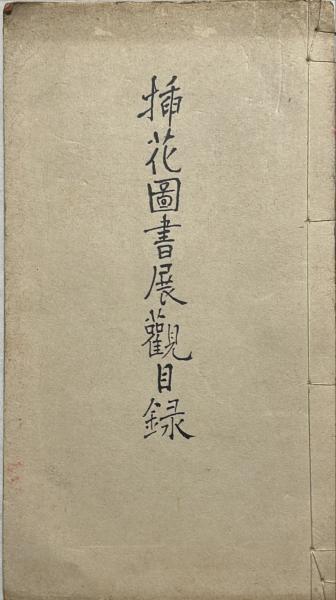 挿花圖書展觀目録